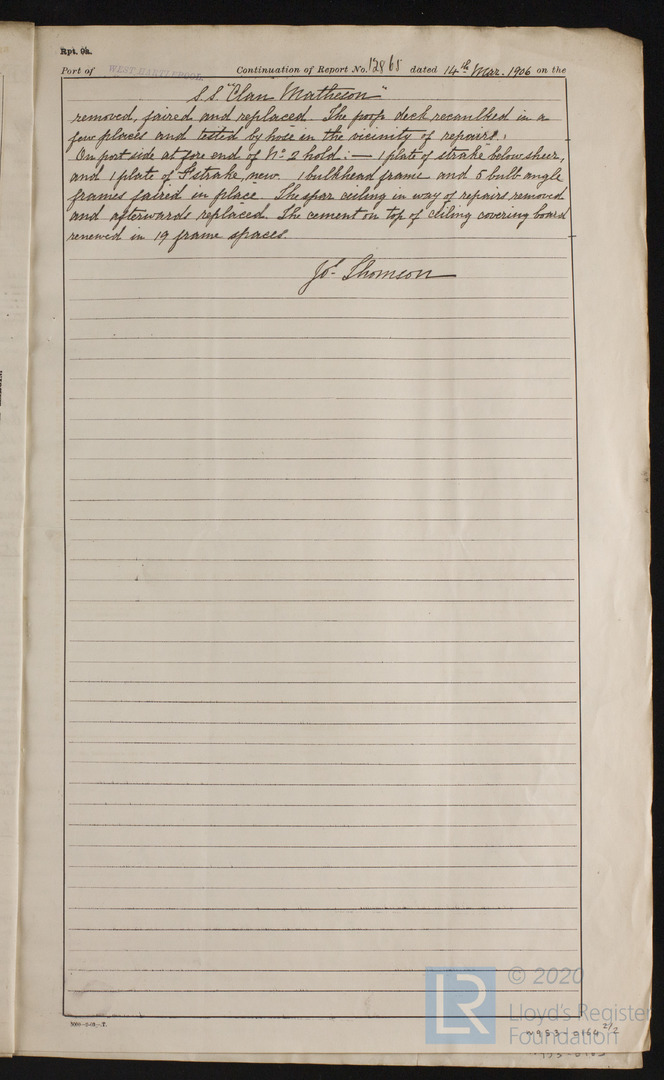 Rpt. 9a.
Port of WEST HARTLEPOOL Continuation of Report No. 12865 dated 14th Mar. 1906 on the
S.S. "Clan Matheson"
removed, faired and replaced. The poop deck recaulked in a
few places and tested by hose in the vicinity of repairs.
On port side at fore end of No 2 hold:— 1 plate of strake below sheer,
and 1 plate of F strake, new. 1 bulkhead frame and 5 bulb angle
frames faired in place. The spar ceiling in way of repairs removed
and afterwards replaced. The cement on top of ceiling covering board
renewed in 19 frame spaces.
Jos. Thomson
5000-2-05.-T.
© 2020
LR Lloyd's Register
Foundation
W953-0164 2/2